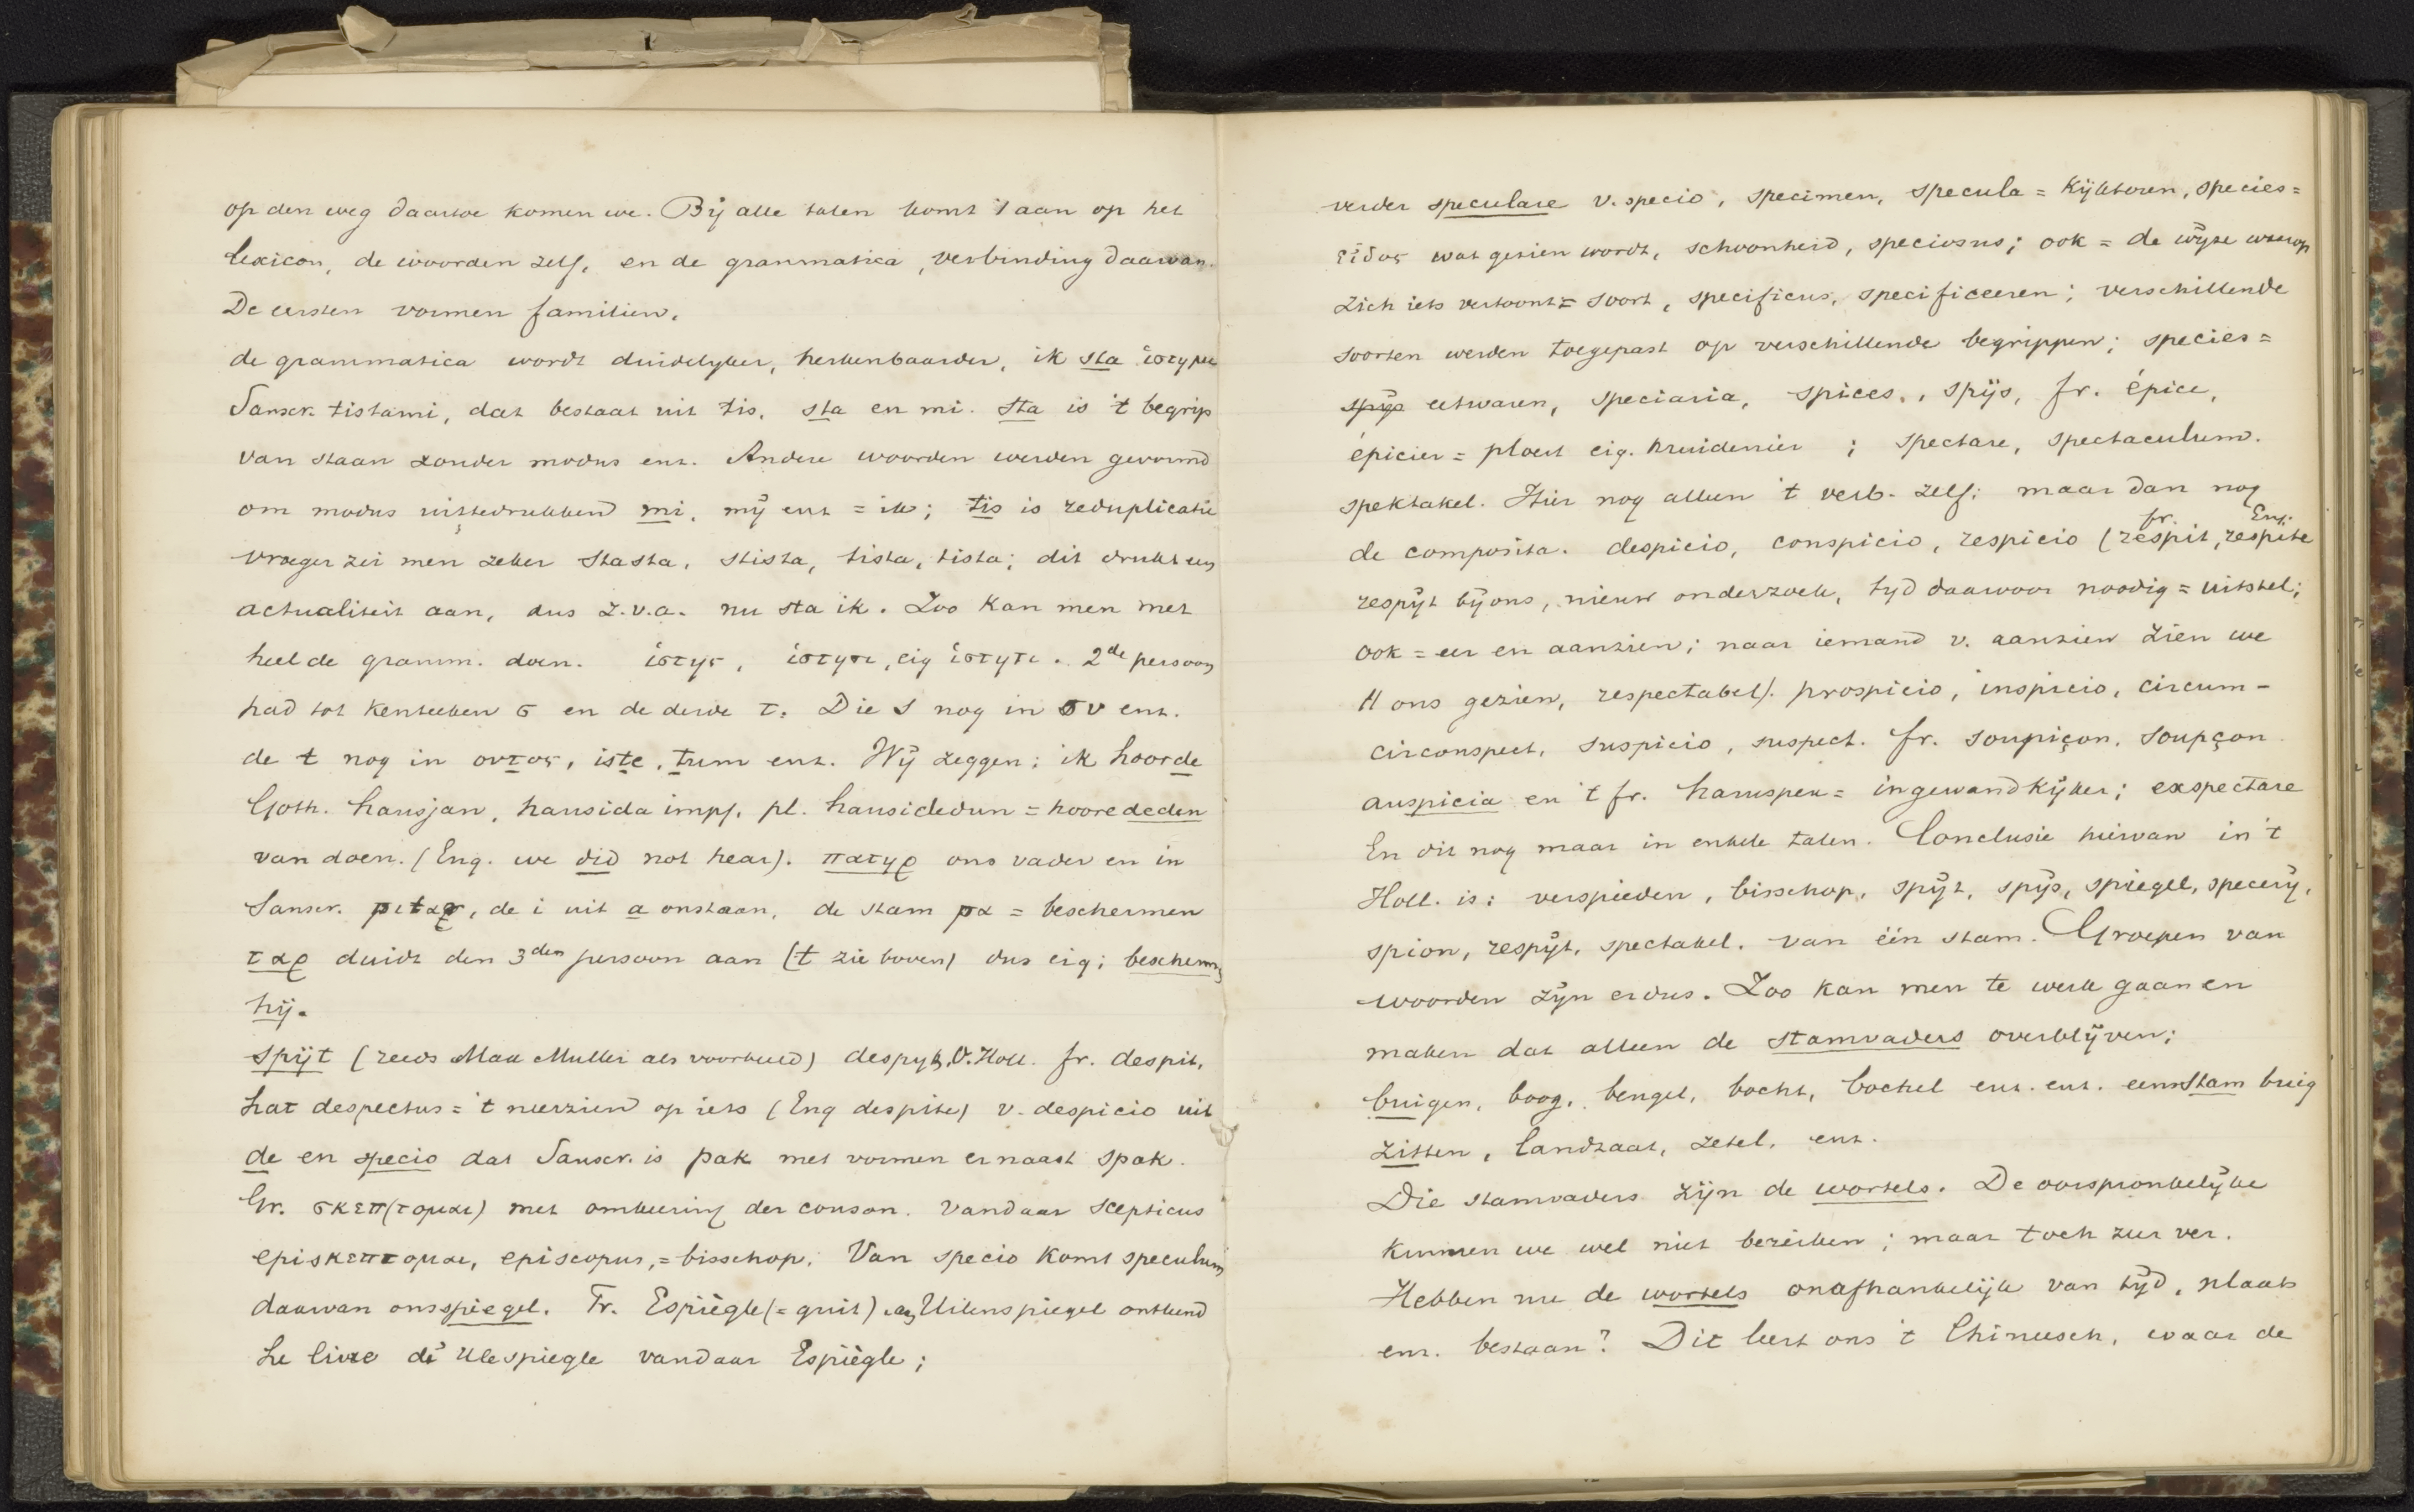 op den weg daartoe komen we. Bij alle talen komt 't aan op het
lexicon, de woorden zelf, en de grammatica, verbinding daarvan.
De eersten vormen familien.
de grammatica wordt duidelyker, herkenbaarder, ik sta ἱστημι
Sanscr. tistami, dat bestaat uit tis, sta en mi. Sta is 't begrip
van staan zonder modus enz. Andere woorden werden gevormd
om modus uittedrukkend mi, mij enz = ik; tis is reduplicatie
vroeger zei men zeker stasta, stista, tista, tista; dit drukt een
actualiteit aan, dus z.v.a. nu sta ik. Zoo kan men met
heel de gramm. doen. ἱστης, ἱστησι, eig ἱστητι. 2de persoon
had tot kenteeken σ en de derde τ. Die s nog in σν enz.
de t nog in ουτος, iste, tum enz. Wij zeggen: ik hoorde
Goth. hausjan, hausida impf. pl. hausidedun = hoorededen
van doen. (Eng. we did not hear). πατηρ ons vader en in
Sanscr. pitar, de i uit a onstaan, de stam pα = beschermen
ταρ duidt den 3den persoon aan (t zie boven) dus eig; bescherm
hij.
spijt (reeds Max Muller als voorbeeld) despyt, O.Holl. fr. despit,
Lat despectus = 't neerzien op iets (Eng despite) v. despicio uit
de en specio dat Sanscr. is pak met vormen ernaast spak.
Gr. σκεπ(τομαι) met omkeering der conson. vandaar scepticus
episκεπτομαι, episcopus, = bisschop. Van specio komt speculum
daarvan ons spiegel. Fr. Espiègle (= guit) aan Uilenspiegel ontleend
Le livre de Ulespiegle vandaar Espiègle;
verder speculare v. specio, specimen, specula = Kijktoren, species =
εἶδος wat gezien wordt, schoonheid, speciosus; ook = de wijze waarop
zich iets vertoont = soort, specificus, specificeeren; verschillende
soorten werden toegepast op verschillende begrippen; species =
spijs eetwaren, speciaria, spices, spijs, fr. épice,
épicier = ploert eig. kruidenier ; spectare, spectaculum.
spektakel. Hier nog alleen 't verb. zelf; maar dan nog
de composita. despicio, conspicio, respicio (fr. respit, Eng. respite
respijt bij ons, nieuw onderzoek, tyd daarvoor noodig = uitstel;
ook = eer en aanzien; naar iemand v. aanzien zien we
// ons gezien, respectabel). prospicio, inspicio, circum-
circonspect, suspicio, suspect. fr. soupiçon, soupçon.
auspicia en 't fr. haruspex = ingewandkijker; exspectare
En dit nog maar in enkele talen. Conclusie hiervan in 't
Holl. is: verspieden, bisschop, spijt, spijs, spiegel, specerij,
spion, respijt, spectakel. van één stam. Groepen van
woorden zijn er dus. Zoo kan men te werk gaan en
maken dat alleen de stamvaders overblijven;
buigen, boog, beugel, bocht, bochel enz. enz. eene stam buig
zitten, landzaat, zetel, enz.
Die stamvaders zijn de wortels. De oorspronkelijke
kunnen we wel niet bereiken; maar toch zeer ver.
Hebben nu de wortels onafhankelijk van tijd, plaats
enz. bestaan? Dit leert ons 't Chineesch, waar de